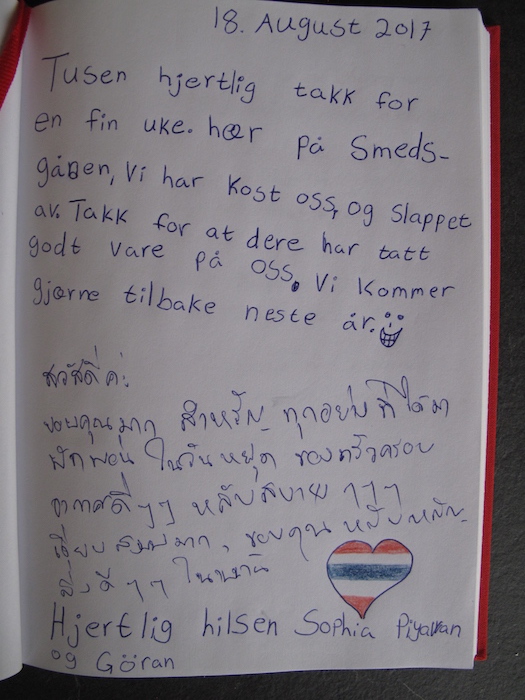 18. August 2017
Tusen hjertlig takk for
en fin uke. hær på Smeds-
gården, Vi har Kost oss, og slappet
av. Takk for at dere har tatt
godt vare på oss. Vi Kommer
gjærne tilbake neste år.
สวัสดีค่ะ
ขอบคุณมาก สำหรับ ทุกอย่าง ที่ได้มา
พักผ่อน ในวันหยุด ของครอบครัว
อากาศดีๆๆ หลับสบาย ๆๆๆ
เงียบ สงบมาก, ขอบคุณ
ดี ๆๆ
Hjertlig hilsen Sophia
og Göran